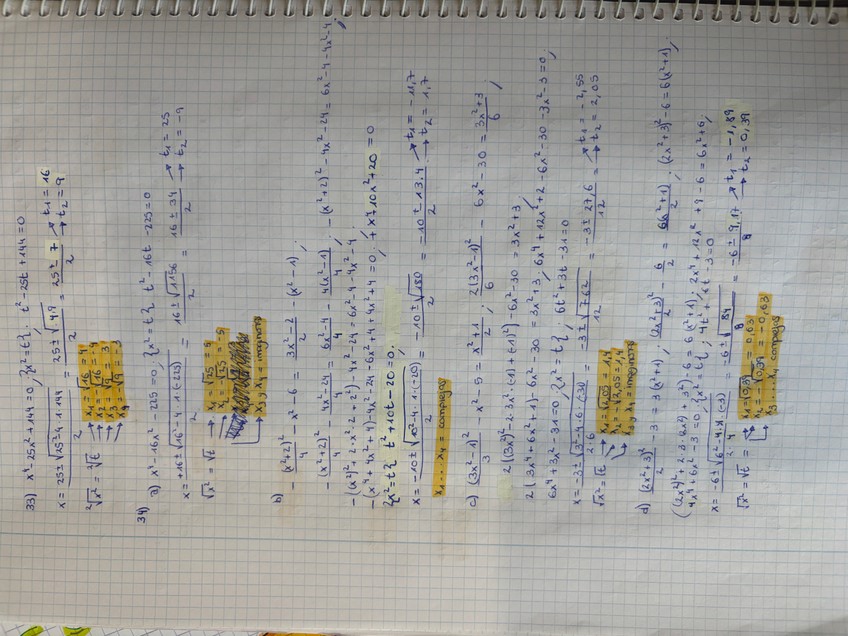 33) x⁴-25x²+144=0; {x²=t}. t²-25t+144=0
x = 25±√25²-4·1·144 / 2 = 25±√49 / 2 = 25±7 / 2 → t₁=16 → t₂=9
²√x² = ²√t → x₁=√16=4
→ x₂=-√16=-4
→ x₃=√9=3
→ x₄=-√9=-3
34)
a) x⁴-16x²-225=0; {x²=t}. t²-16t-225=0
x = +16±√16²-4·1·(-225) / 2 = 16±√1156 / 2 = 16±34 / 2 → t₁=25 → t₂=-9
√x²=√t → x₁=√25=5
→ x₂=-√25=-5
→ x₃ y x₄ = imaginario
b) -(x²+2)² / 4 - x²-6 = 3x²-2 / 2 - (x²-1);
-(x²+2)² / 4 - 4x²-24 / 4 = 6x²-4 / 4 - 4(x²-1) / 4; -(x²+2)²-4x²-24=6x²-4-4x²-4;
-((x²)²+2·x²·2+2²)-4x²-24=6x²-4-4x²-4;
-(x⁴+4x²+4)-4x²-24-6x²+4+4x²+4=0; +x⁴+10x²+20=0
{x²=t} t²+10t-20=0.
x = -10±√10²-4·1·(-20) / 2 = -10±√180 / 2 = -10±13,4 / 2 → t₁=-11,7 → t₂=1,7
x₁...x₄=complejos
c) (3x²-1)² / 3 - x²-5 = x²+1 / 2; 2(3x²-1)² / 6 - 6x²-30 = 3x²+3 / 6;
2((3x²)²+2·3x²·(-1)+(-1)²)-6x²-30=3x²+3;
2(3x⁴+6x²+1)-6x²-30=3x²+3; 6x⁴+12x²+2-6x²-30-3x²-3=0;
6x⁴+3x²-31=0; {x²=t}; 6t²+3t-31=0
x = -3±√3²-4·6·(-31) / 2·6 = -3±√762 / 12 = -3±27,6 / 12 → t₁=-2,55 → t₂=2,05
√x²=√t → x₁=√2,05=1,4
→ x₂=-√2,05=1,4
→ x₃ y x₄=imaginario
d) (2x²+3)² / 2 - 3=3(x²+1); (2x²+3)² / 2 - 6 / 2 = 6(x²+1) / 2; (2x²+3)²-6=6(x²+1);
((2x²)²+2·3·2x²+3²)-6=6(x²+1); 2x⁴+12x²+9-6=6x²+6;
4x⁴+6x²-3=0; {x²=t}; 4t²+6t-3=0
x = -6±√6²-4·4·(-3) / 2·4 = -6±√84 / 8 = -6±9,17 / 8 → t₁=-1,89 → t₂=0,39
√x²=√t → x₁=√0,39=0,63
→ x₂=-√0,39=-0,63
→ x₃...x₄ complejos